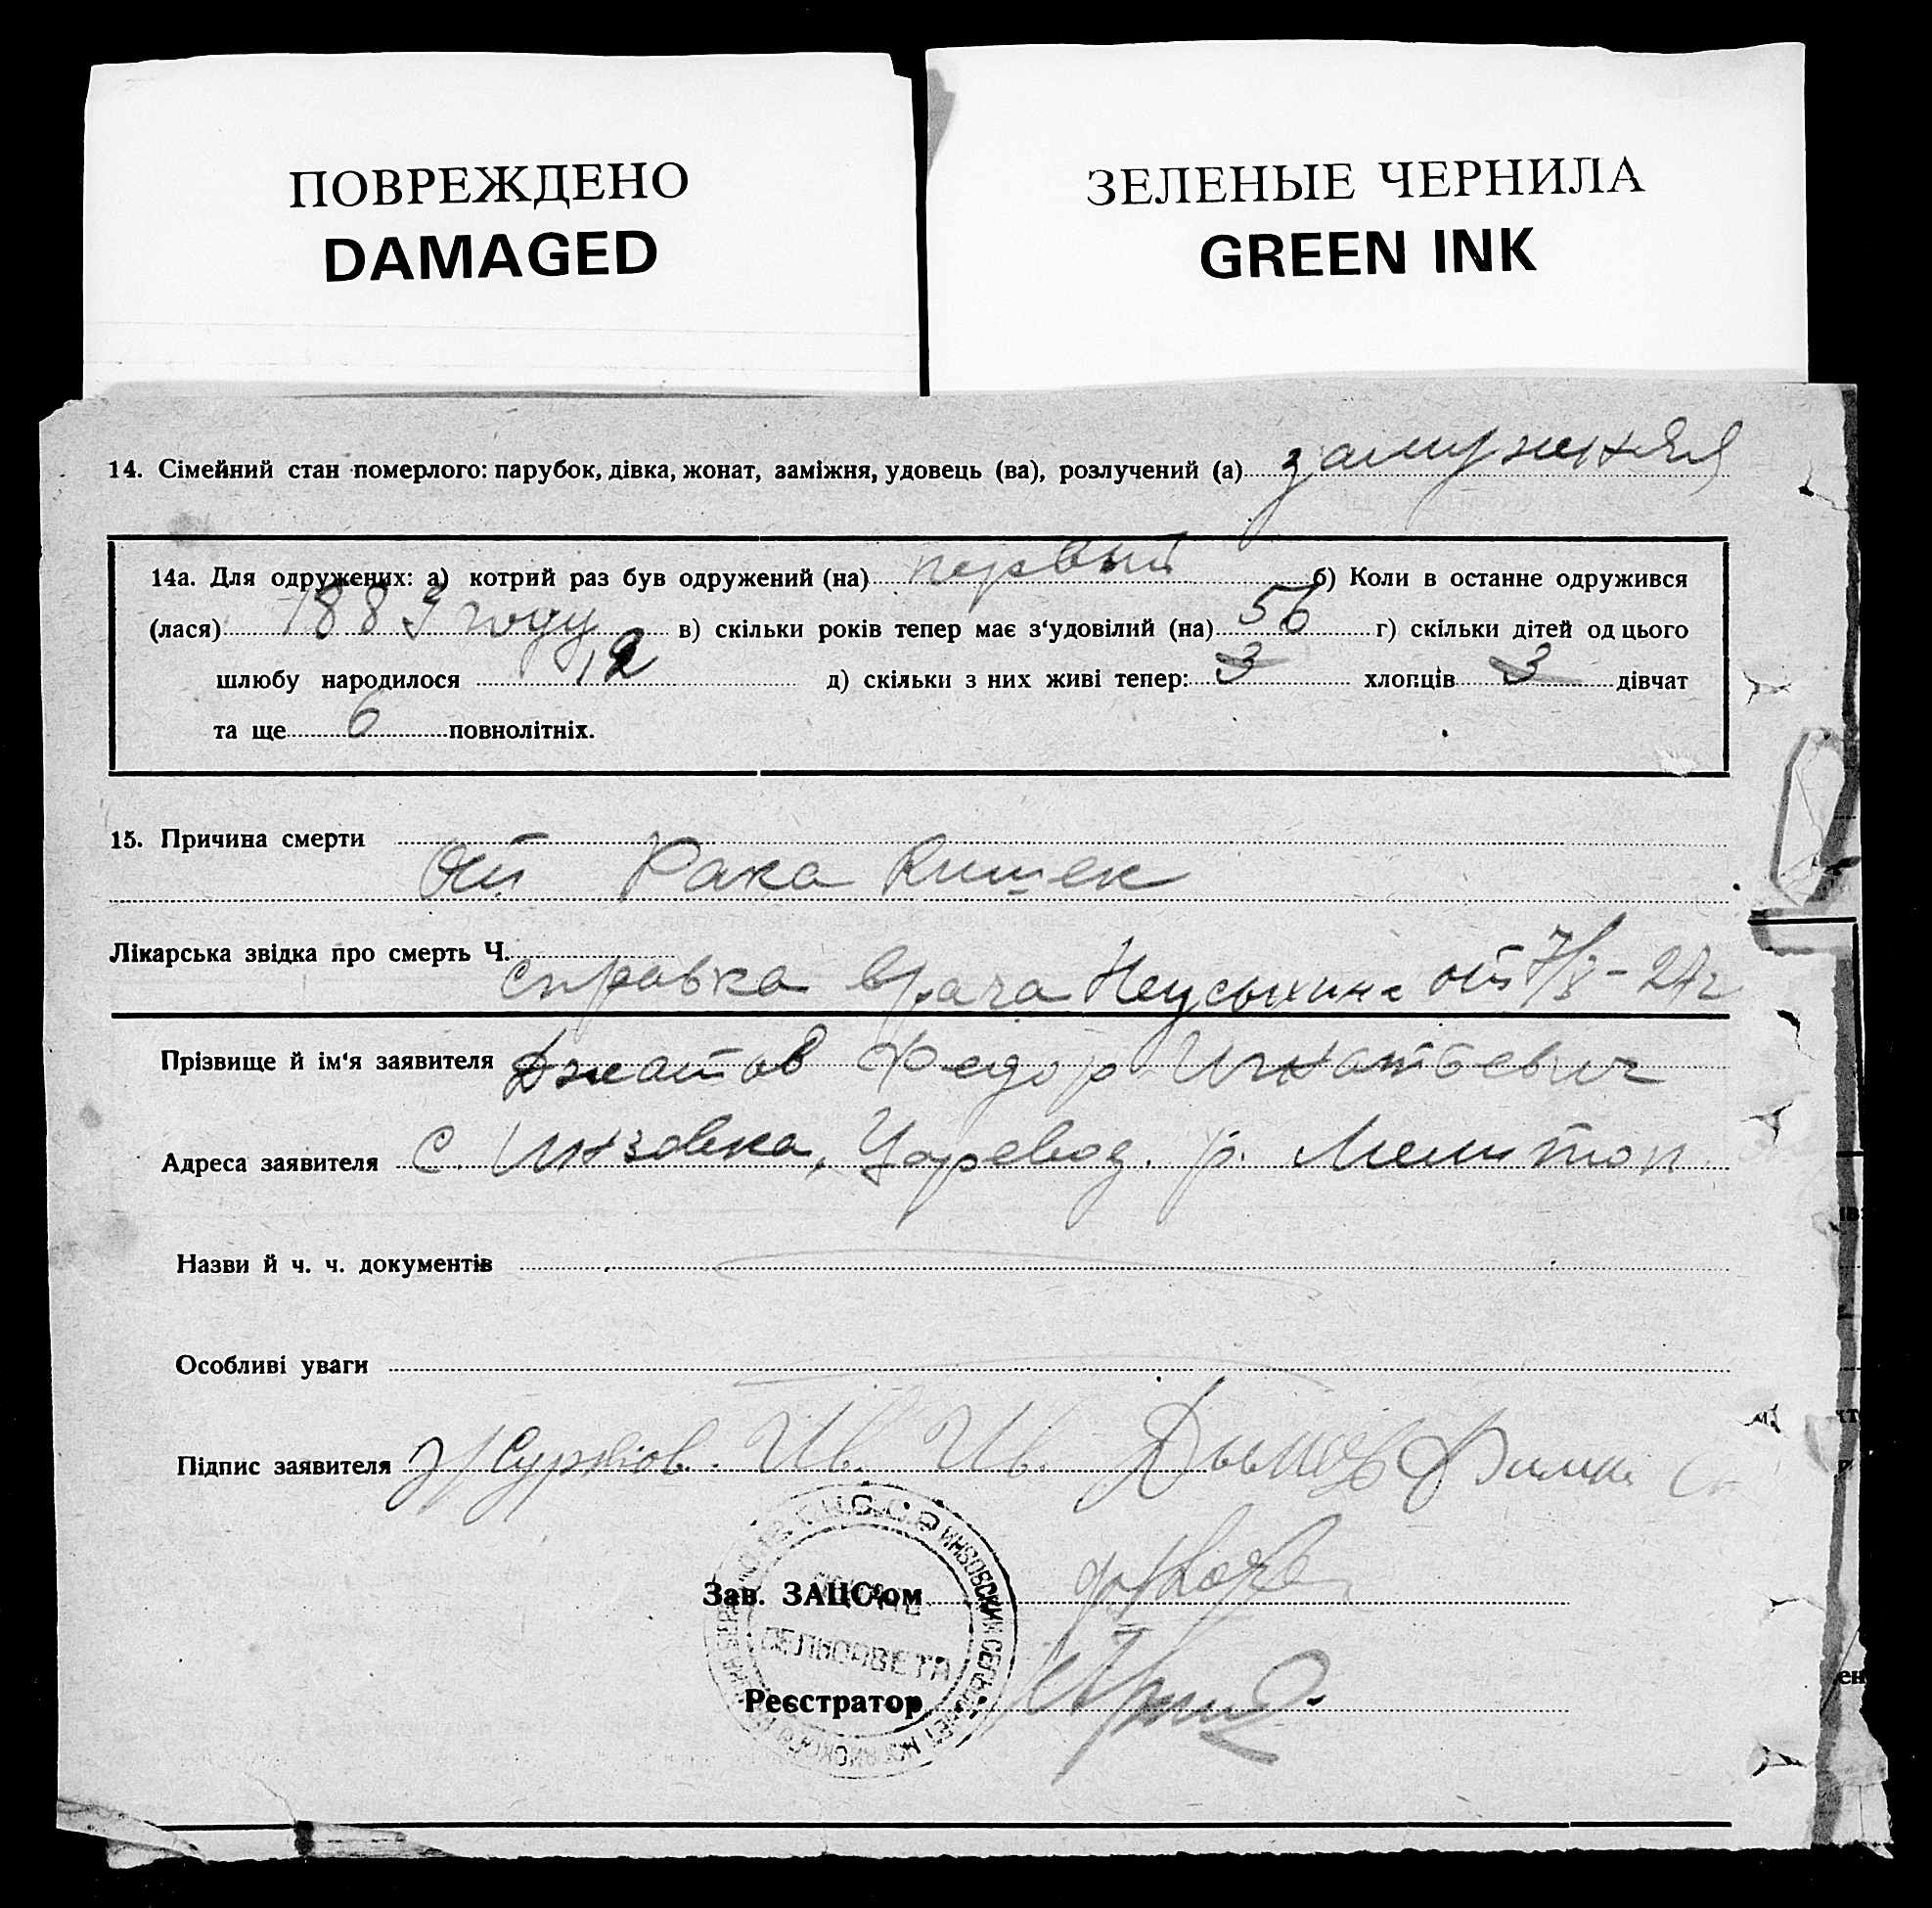 ПОВРЕЖДЕНО
DAMAGED
ЗЕЛЕНЫЕ ЧЕРНИЛА
GREEN INK
14. Сімейний стан померлого: парубок, дівка, жонат, заміжня, удовець (ва), розлучений (а) замужняя
14а. Для одружених: а) котрий раз був одружений (на) первый б) Коли в останне одружився
(лася) 1889 году в) скільки років тепер має з'удовілий (на) 56 г) скільки дітей од цього
шлюбу народилося 12 д) скільки з них живі тепер: 3 хлопців 3 дівчат
та ще 6 повнолітніх.
15. Причина смерти
От Рака Кишек
Лікарська звідка про смерть Ч.
справка врача от 7/X-27г
Прізвище й ім'я заявителя Джатов Федор Игнатьевич
Адреса заявителя с. Инзовка, Царевод. р. Мелитоп.
Назви й ч. ч. документів
Особливі уваги
Підпис заявителя Ив. Ив.
Зав. ЗАЦС'ом
Реєстратор
ИНЗОВСКИЙ
СЕЛЬСОВЕТА